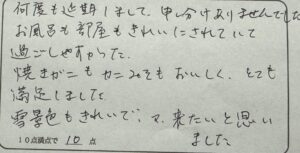 何度も延期しまして、申し分けありませんでした
お風呂も部屋もきれいにされていて
過ごしやすかった。
焼きがにもカニみそもおいしく、とても
満足しました
雪景色もきれいで、又、来たいと思い
ました
10点満点で 10 点